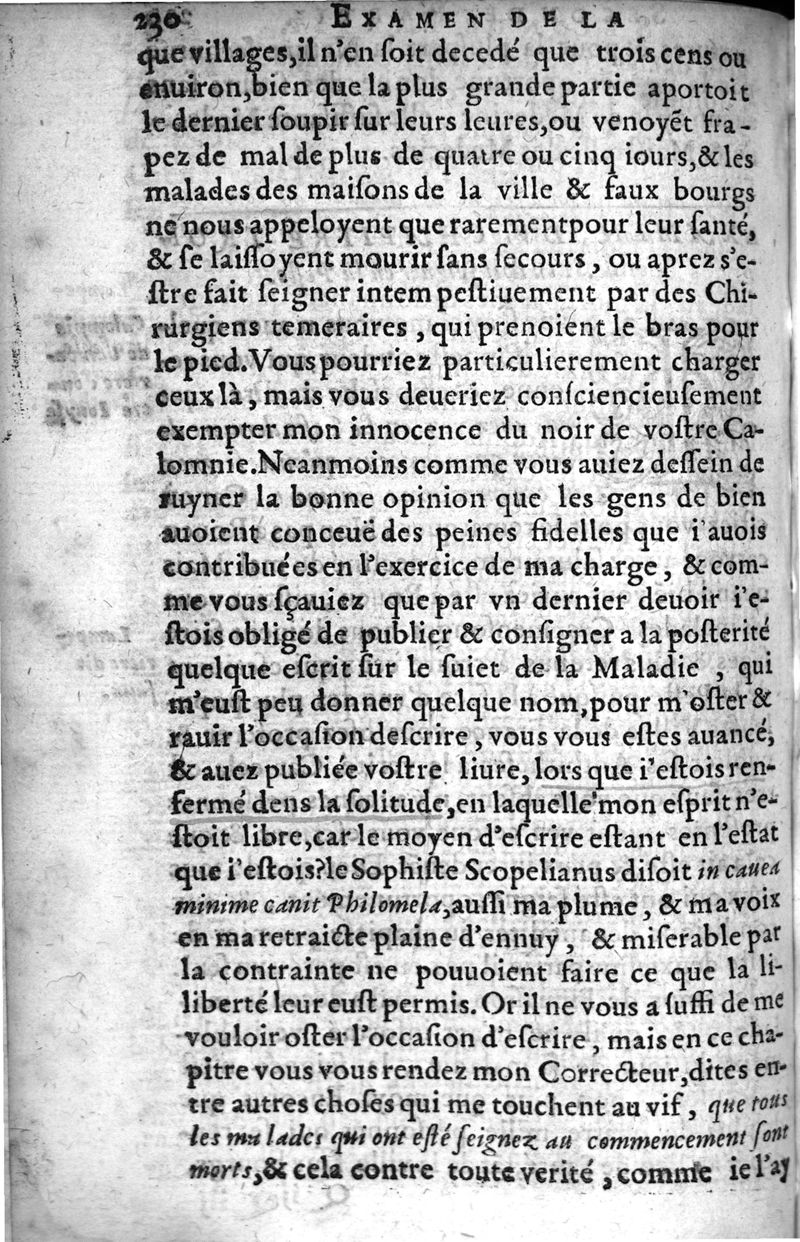 230 EXAMEN DE LA
que villages, il n'en ſoit decedé que trois cens ou
enuiron, bien que la plus grande partie aportoit
le dernier ſoupir ſur leurs leures, ou venoyẽt fra-
pez de mal de plus de quatre ou cinq iours, & les
malades des maiſons de la ville & faux bourgs
ne nous appeloyent que rarement pour leur ſanté,
& ſe laiſſoyent mourir ſans ſecours, ou aprez s'e-
ſtre fait ſeigner intempeſtiuement par des Chi-
rurgiens temeraires, qui prenoient le bras pour
le pied. Vous pourriez particulierement charger
ceux là, mais vous deueriez conſciencieuſement
exempter mon innocence du noir de voſtre Ca-
lomnie. Neanmoins comme vous auiez deſſein de
ruyner la bonne opinion que les gens de bien
auoient conceuë des peines fidelles que i'auois
contribuées en l'exercice de ma charge, & com-
me vous ſçauiez que par vn dernier deuoir i'e-
ſtois obligé de publier & conſigner a la poſterité
quelque eſcrit ſur le ſuiet de la Maladie, qui
m'euſt peu donner quelque nom, pour m'oſter &
rauir l'occaſion deſcrire, vous vous eſtes auancé,
& auez publiée voſtre liure, lors que i'eſtois ren-
fermé dens la ſolitude, en laquelle mon eſprit n'e-
ſtoit libre, car le moyen d'eſcrire eſtant en l'eſtat
que i'eſtois? le Sophiſte Scopelianus diſoit in cauea
minime canit Philomela, auſſi ma plume, & ma voix
en ma retraicte plaine d'ennuy, & miſerable par
la contrainte ne pouuoient faire ce que la li-
liberté leur euſt permis. Or il ne vous a ſuffi de me
vouloir oſter l'occaſion d'eſcrire, mais en ce cha-
pitre vous vous rendez mon Correcteur, dites en-
tre autres choſes qui me touchent au vif, que tous
les malades qui ont eſté ſeignez au commencement ſont
morts, & cela contre toute verité, comme ie l'ay